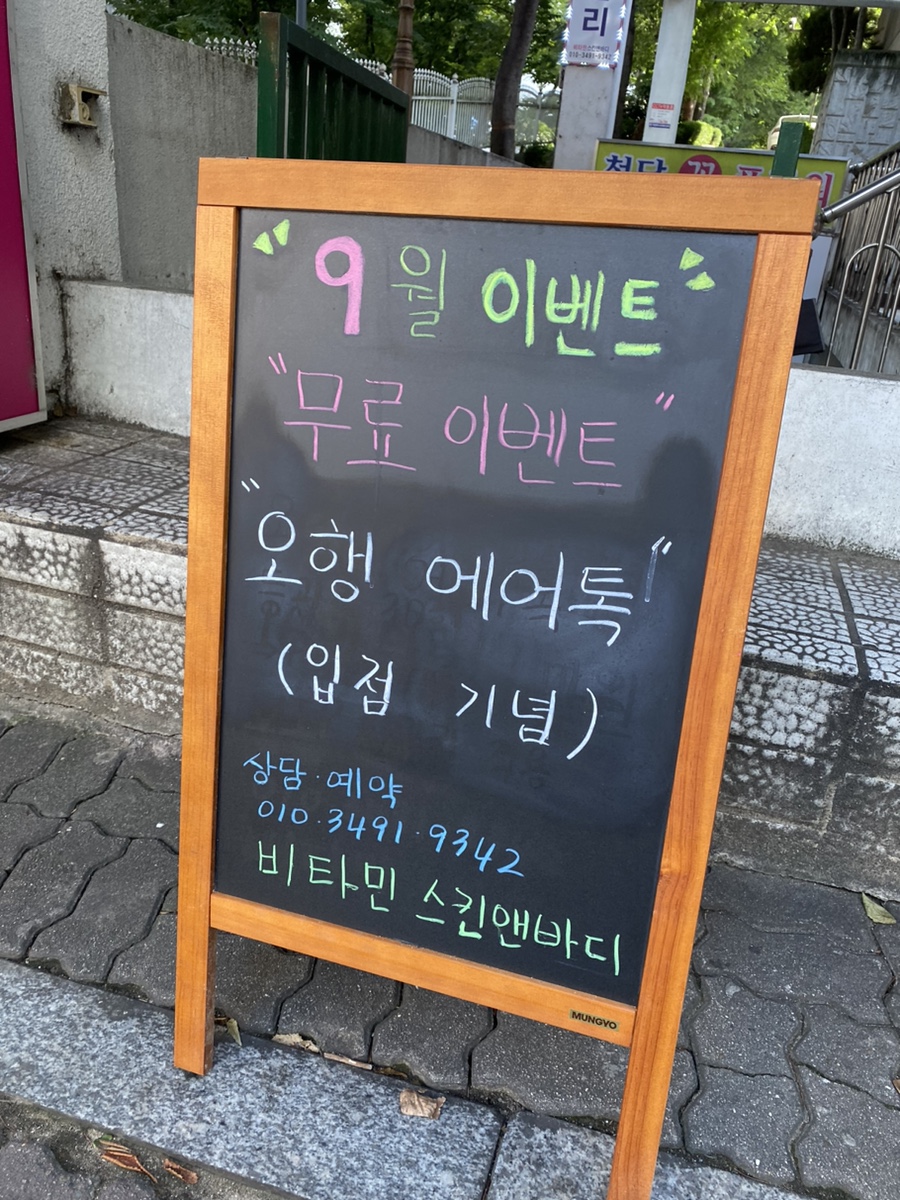 리
010-3491-9342
9월 이벤트
"무료 이벤트"
"오행 에어톡"
(입점 기념)
상담·예약
010·3491·9342
비타민 스킨앤바디
MUNGYO